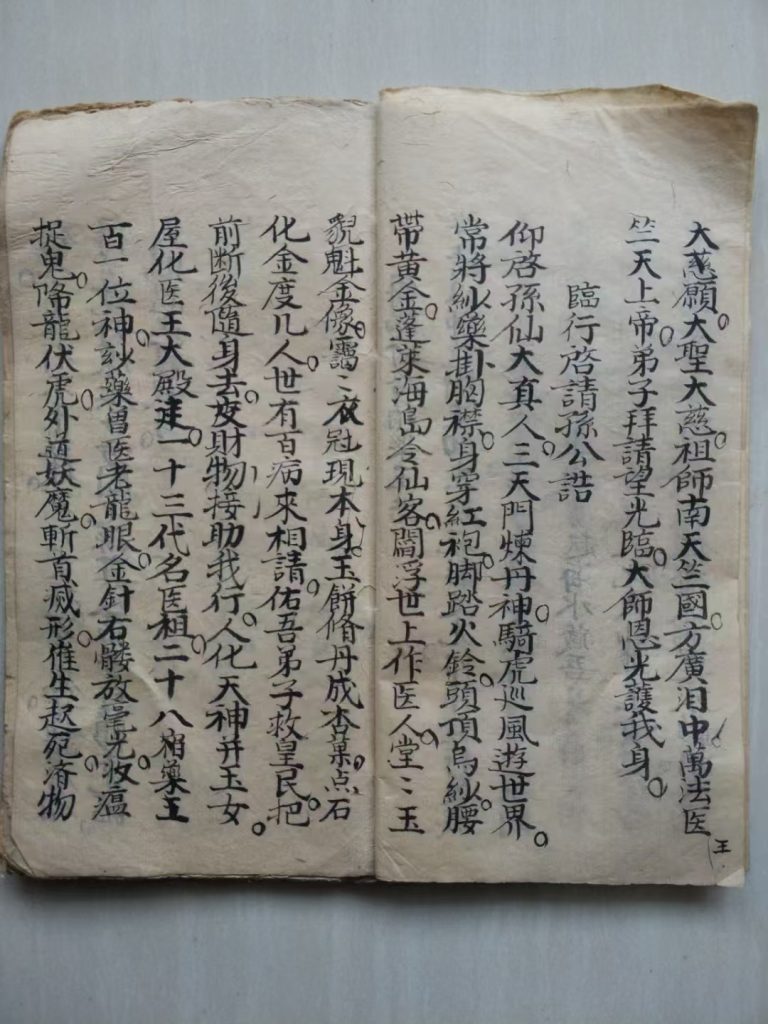 大慈願。大聖大慈。祖師南天竺國。方廣泪中。萬法医王
竺天上帝。弟子拜請望光臨。大師恩光護我身。
臨行啓請孫公誥
仰啓孫仙大真人。三天門煉丹神。騎虎巡風遊世界。
常將紗藥掛胸襟。身穿紅袍。脚踏火鈴。頭頂烏紗。腰
帶黃金。蓬萊海島冷仙客。閻浮世上作医人。堂〻玉
貌魁金像。靄〻衣冠現本身。玉餅脩丹成杏菓。点石
化金度几人。世有百病來相請。佑吾弟子救皇民。把
前断後隨身去。財物接助我行。人化天神并玉女。
屋化医王大殿。一十三代名医祖。二十八宿藥王
百一位神。玅藥曽医老龍眼。金針右髏放毫光。收瘟
捉鬼。降龍伏虎。外道妖魔。斬首滅形。催生起死。済物